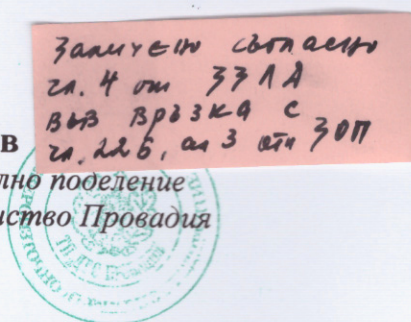 Заличено съгласно
чл. 4 от ЗЗЛД
във връзка с
чл. 22б, ал 3 от ЗОП
в
лно поделение
нство Провадия